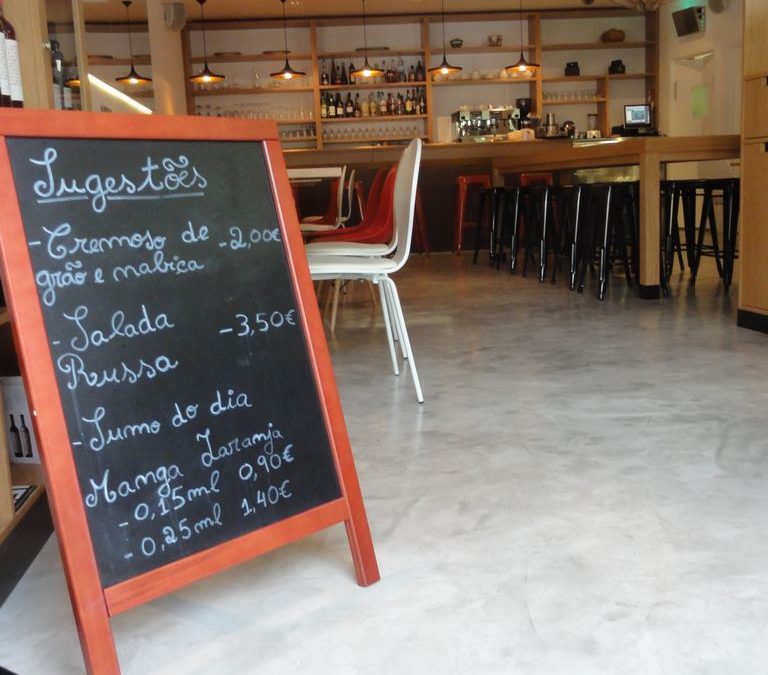 Sugestões
- Cremoso de - 2,00€
grão e nabiça
- Salada - 3,50€
Russa
- Sumo do dia
Manga Laranja
- 0,15ml 0,90€
- 0,25ml 1,40€